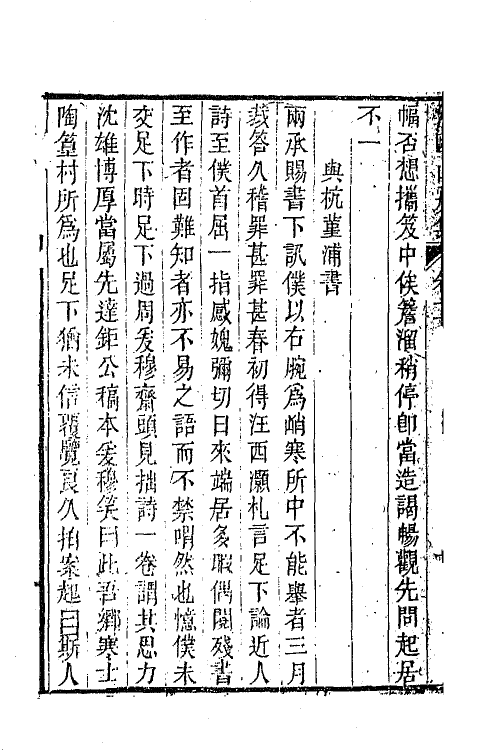 幅否想攜笈中俟簷溜稍停卽當造謁暢觀先問起居
不一
與杭堇浦書
兩承賜書下訊僕以右腕爲峭寒所中不能舉者三月
裁答久稽罪甚罪甚春初得汪西灝札言足下論近人
詩至僕首屈一指感媿彌切日來端居多暇偶閱殘書
至作者固難知者亦不易之語而不禁喟然也憶僕未
交足下時足下過周爰穆齋頭見拙詩一卷謂其思力
沈雄博厚當屬先達鉅公稿本爰穆笑曰此吾鄕寒士
陶篁村所爲也足下猶未信覆覽良久拍案起曰斯人